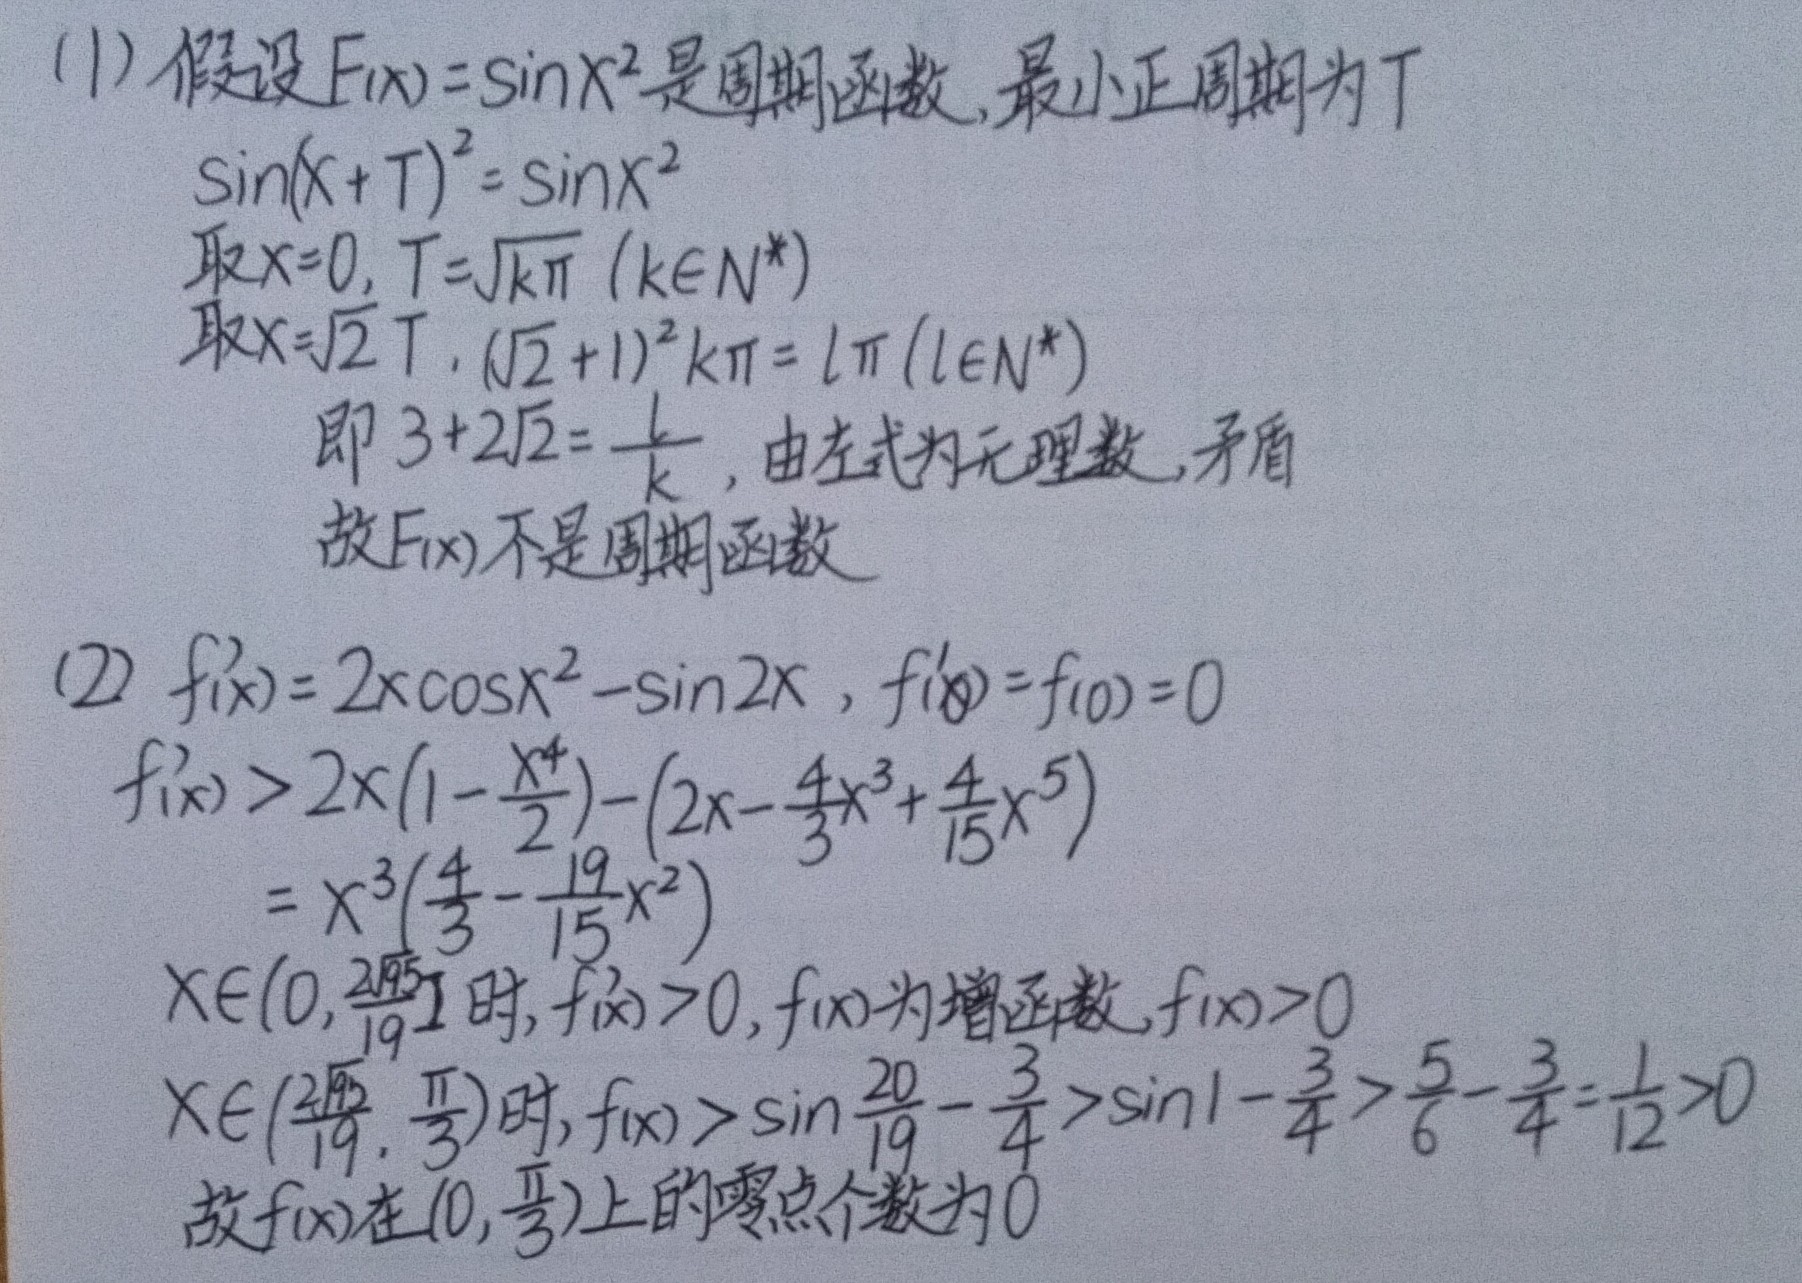 (1) 假设F(x)=sinx²是周期函数,最小正周期为T
sin(x+T)²=sinx²
取x=0, T=√kπ (k∈N*)
取x=√2T, (√2+1)²kπ=lπ(l∈N*)
即 3+2√2=l/k, 由左式为无理数,矛盾
故F(x)不是周期函数
(2) f'(x)=2xcosx²-sin2x, f'(0)=f(0)=0
f'(x)>2x(1-x⁴/2)-(2x-4/3x³+4/15x⁵)
=x³(4/3-19/15x²)
x∈(0,2√95/19]时,f'(x)>0,f(x)为增函数,f(x)>0
x∈(2√95/19,π/3)时,f(x)>sin20/19-3/4>sin1-3/4>5/6-3/4=1/12>0
故f(x)在(0,π/3)上的零点个数为0